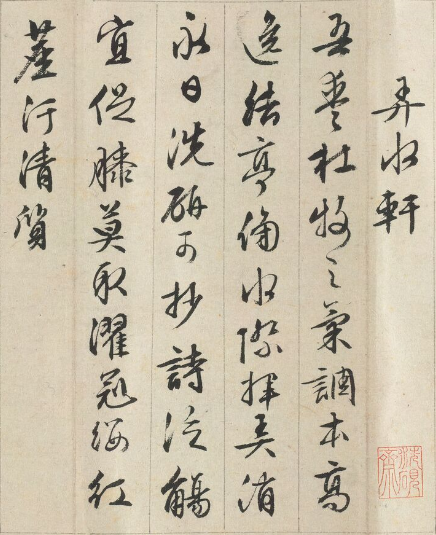 弄水軒
吾愛杜牧之氣調本高
逸結亭水際揮弄消
永日洗硯可抄詩泛觴
宜促膝莫取濯冠纓紅
塵汙清質